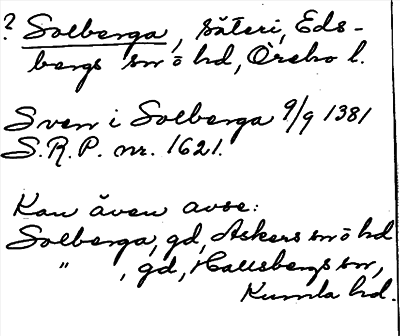 ? Solberga, säteri, Eds-
bergs sn ō hd, Örebro l.
Sven i Solberga 9/9 1381
S.R.P. nr. 1621.
Kan även avse:
Solberga, gd, Askers sn ō hd
" , gd, Hallsbergs sn,
Kumla hd.